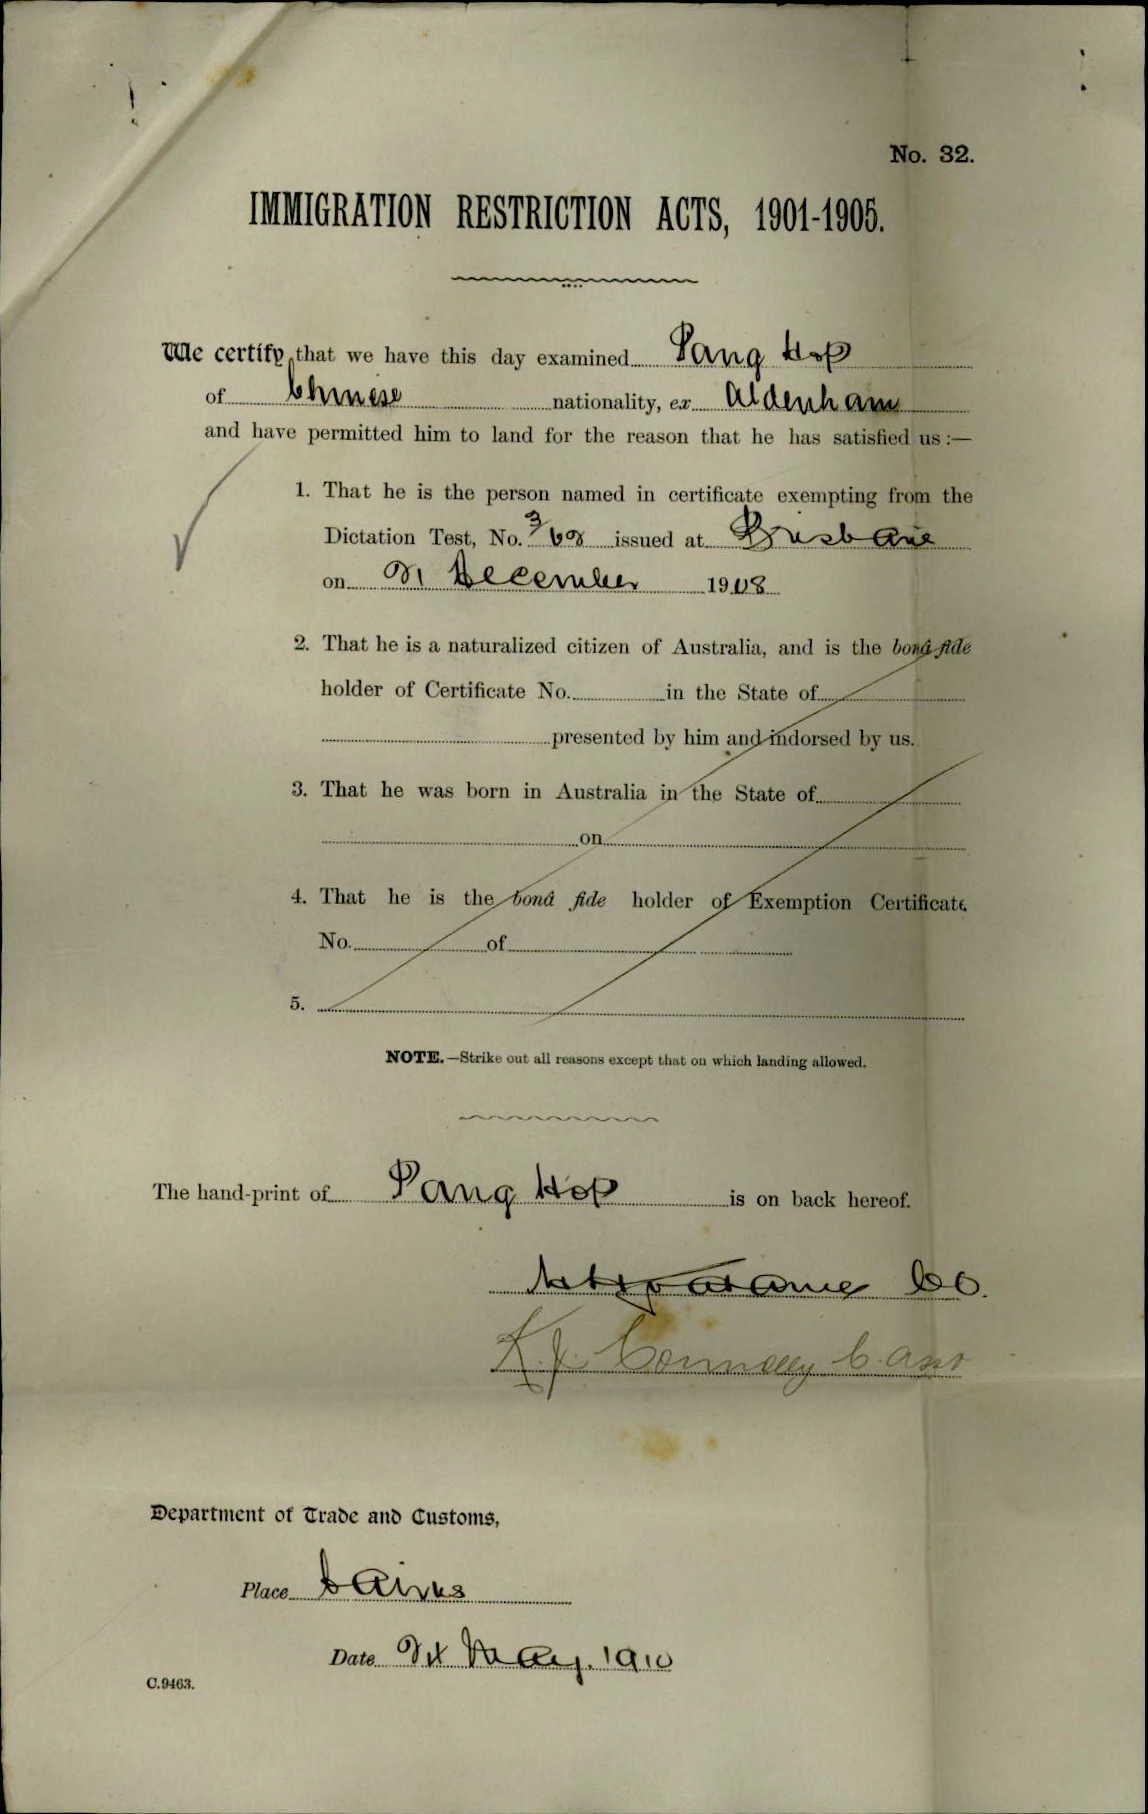 No. 32.
IMMIGRATION RESTRICTION ACTS, 1901-1905.
We certify that we have this day examined Pang Hop
of Chinese nationality, ex Aldenham
and have permitted him to land for the reason that he has satisfied us :—
1. That he is the person named in certificate exempting from the
Dictation Test, No. 3/62 issued at Brisbane
on 21 December 1908
2. That he is a naturalized citizen of Australia, and is the bonâ fide
holder of Certificate No. in the State of
presented by him and indorsed by us.
3. That he was born in Australia in the State of
on
4. That he is the bonâ fide holder of Exemption Certificate
No. of
5.
NOTE.—Strike out all reasons except that on which landing allowed.
The hand-print of Pang Hop is on back hereof.
K.J. Connolly C. Asst
Department of Trade and Customs,
Place Cairns
Date 24 May. 1910
C.9463.